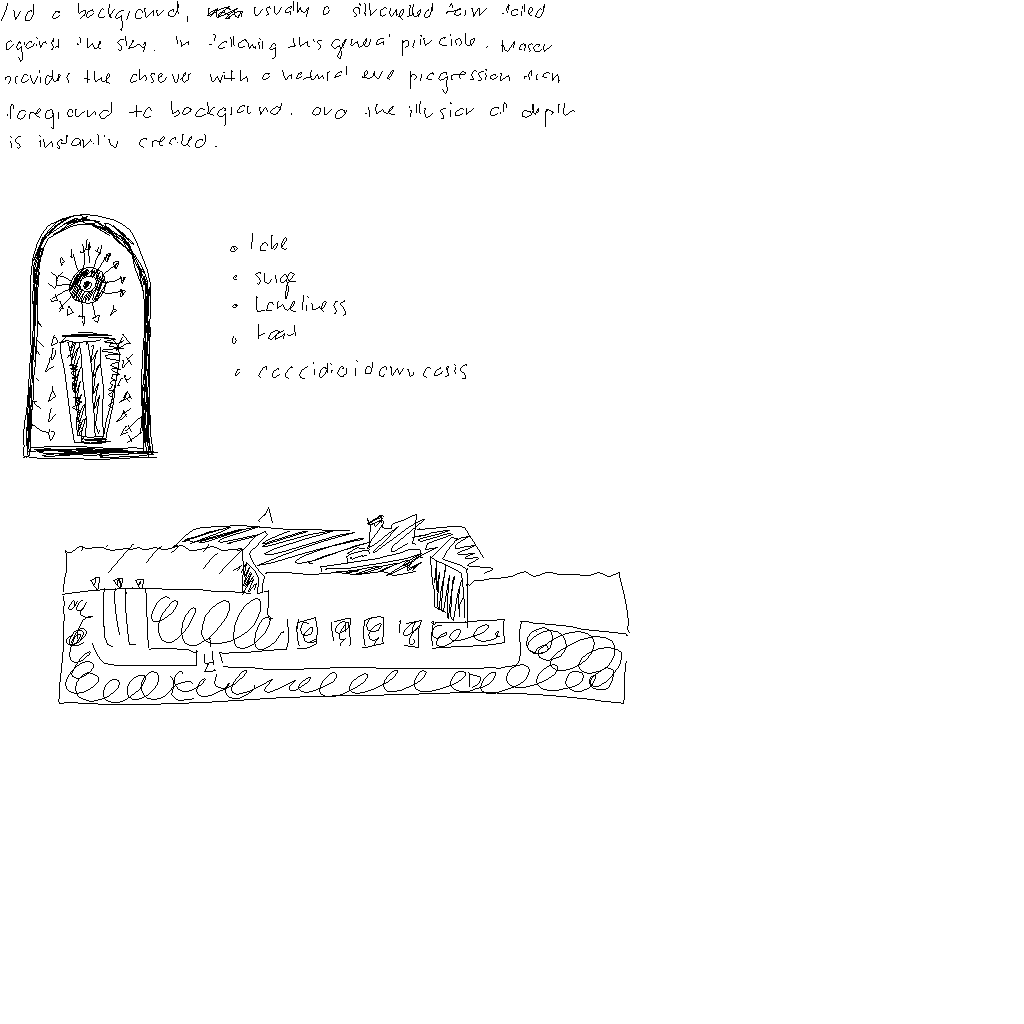 and a background, usually a silhouetted form foiled
against the sky. In following this general principle, Moser
provides the observer with a natural eye progression from
foreground to background, and the illusion of depth
is instantly created.
lobe
surge
Loneliness
toad
coccidioidomycosis